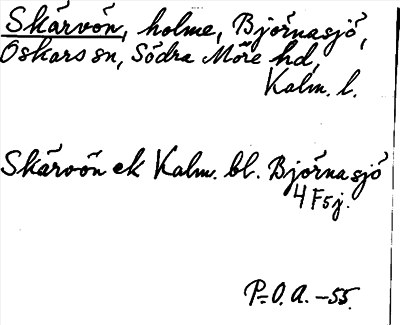 Skärvön, holme, Björnasjö,
Oskars sn, Södra Möre hd,
Kalm. l.
Skärvön ek Kalm. bl. Björnasjö
4 F5j.
P-O.A. -55.